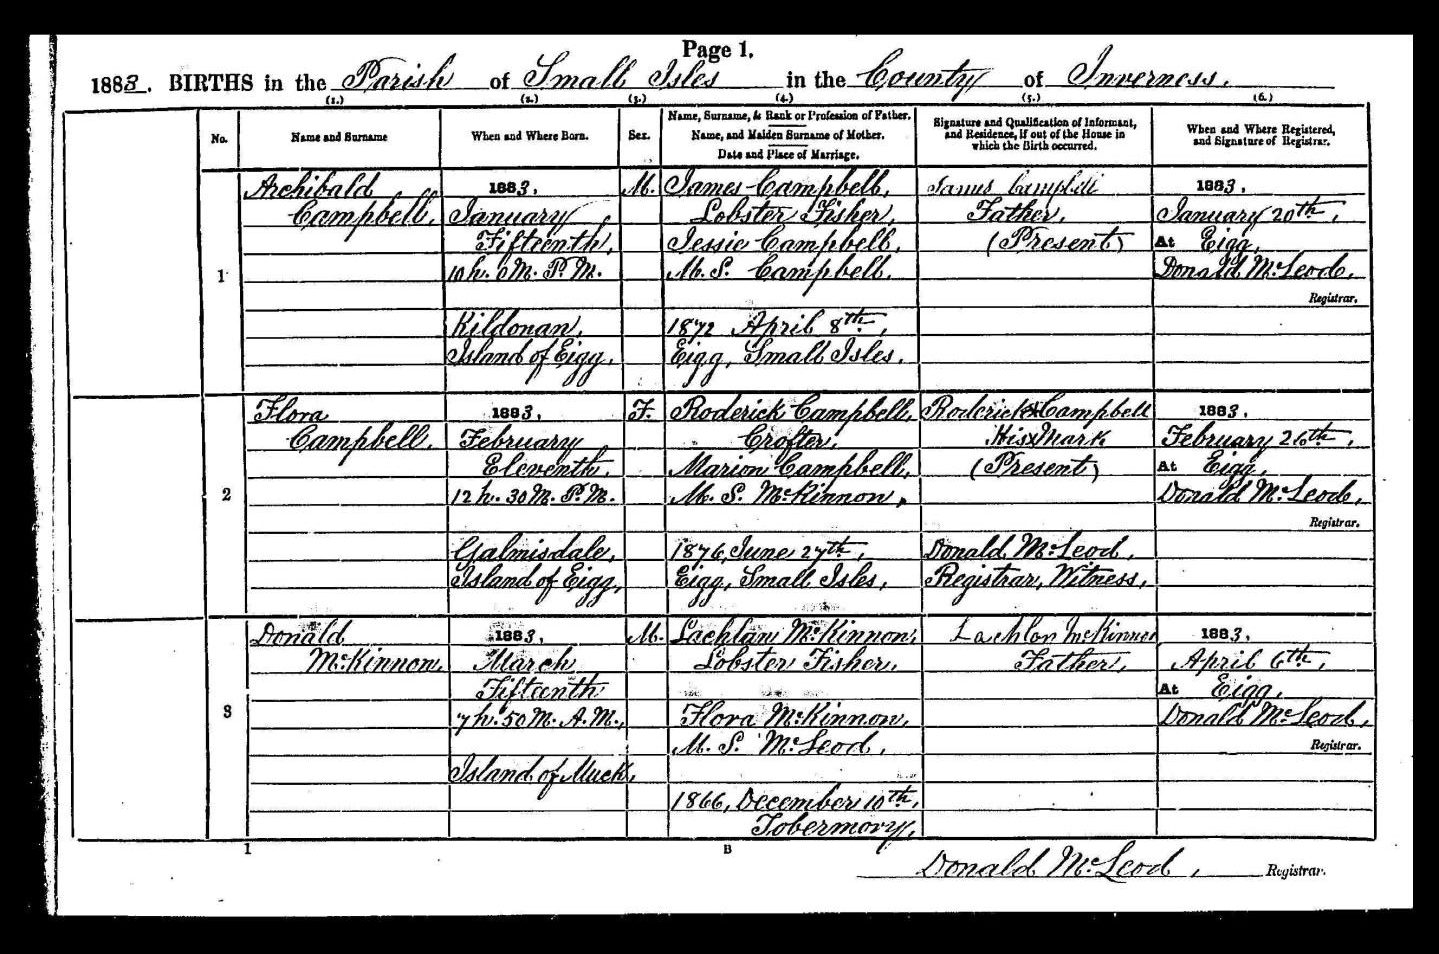 Page 1.
1883. BIRTHS in the Parish of Small Isles in the County of Inverness.
(1.) (2.) (3.) (4.) (5.) (6.)
No.
Name and Surname
When and Where Born.
Sex.
Name, Surname, & Rank or Profession of Father.
Name, and Maiden Surname of Mother.
Date and Place of Marriage.
Signature and Qualification of Informant,
and Residence, if out of the House in
which the Birth occurred.
When and Where Registered,
and Signature of Registrar.
1
Archibald
Campbell.
1883.
January
Fifteenth,
10h. 0M. P.M.
Kildonan,
Island of Eigg.
M.
James Campbell,
Lobster Fisher,
Jessie Campbell,
M.S. Campbell.
1872 April 8th,
Eigg, Small Isles.
James Campbell
Father,
(Present)
1883.
January 20th,
At Eigg,
Donald McLeod,
Registrar.
2
Flora
Campbell.
1883.
February
Eleventh.
12h. 30M. P.M.
Galmisdale,
Island of Eigg,
F.
Roderick Campbell,
Crofter,
Marion Campbell,
M.S. McKinnon,
1876, June 27th,
Eigg, Small Isles,
Roderick x Campbell
His x Mark
(Present)
Donald McLeod,
Registrar, Witness,
1883.
February 26th,
At Eigg,
Donald McLeod,
Registrar.
3
Donald
McKinnon,
1883.
March
Fifteenth
7h. 50M. A.M.,
Island of Muck,
M.
Lachlan McKinnon,
Lobster Fisher,
Flora McKinnon,
M.S. McLeod,
1866, December 10th,
Tobermory,
Lachlan McKinnon
Father,
1883.
April 6th,
At Eigg,
Donald McLeod,
Registrar.
1 B
Donald McLeod, Registrar.